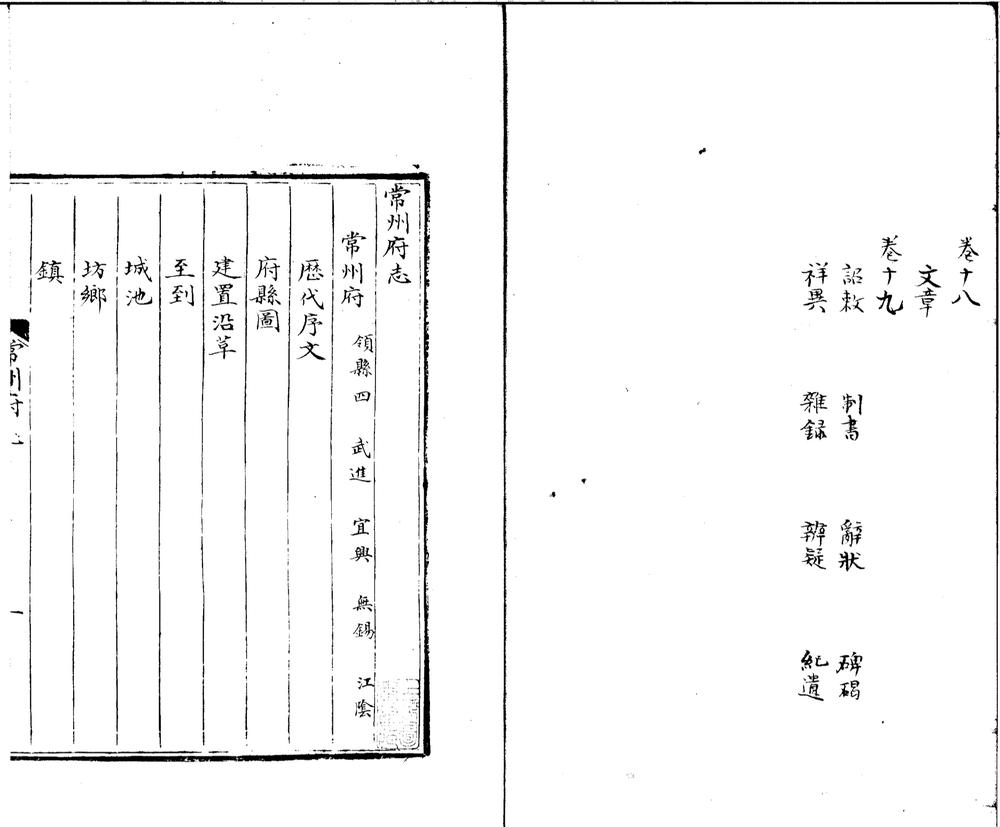 卷十八
文章
卷十九
詔敕 制書 辭狀 碑碣
祥異 雜録 辨疑 紀遺
常州府志
常州府 領縣四 武進 宜興 無錫 江陰
歷代序文
府縣圖
建置沿革
至到
城池
坊鄉
鎮
常州府
一